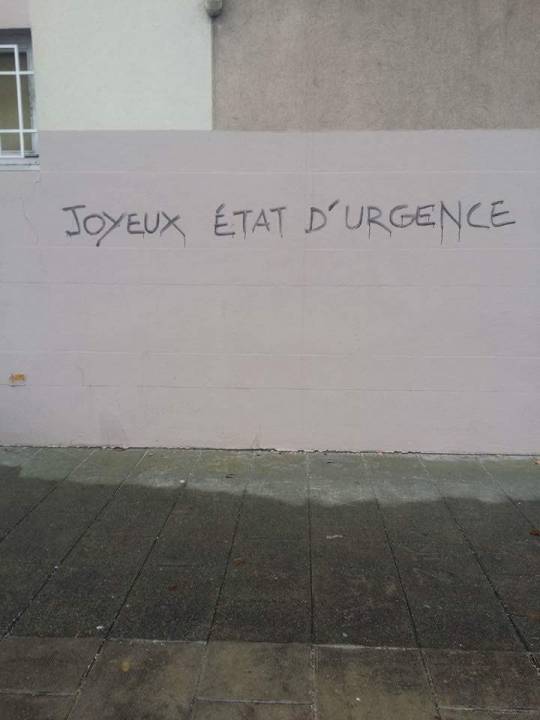 JOYEUX ÉTAT D'URGENCE